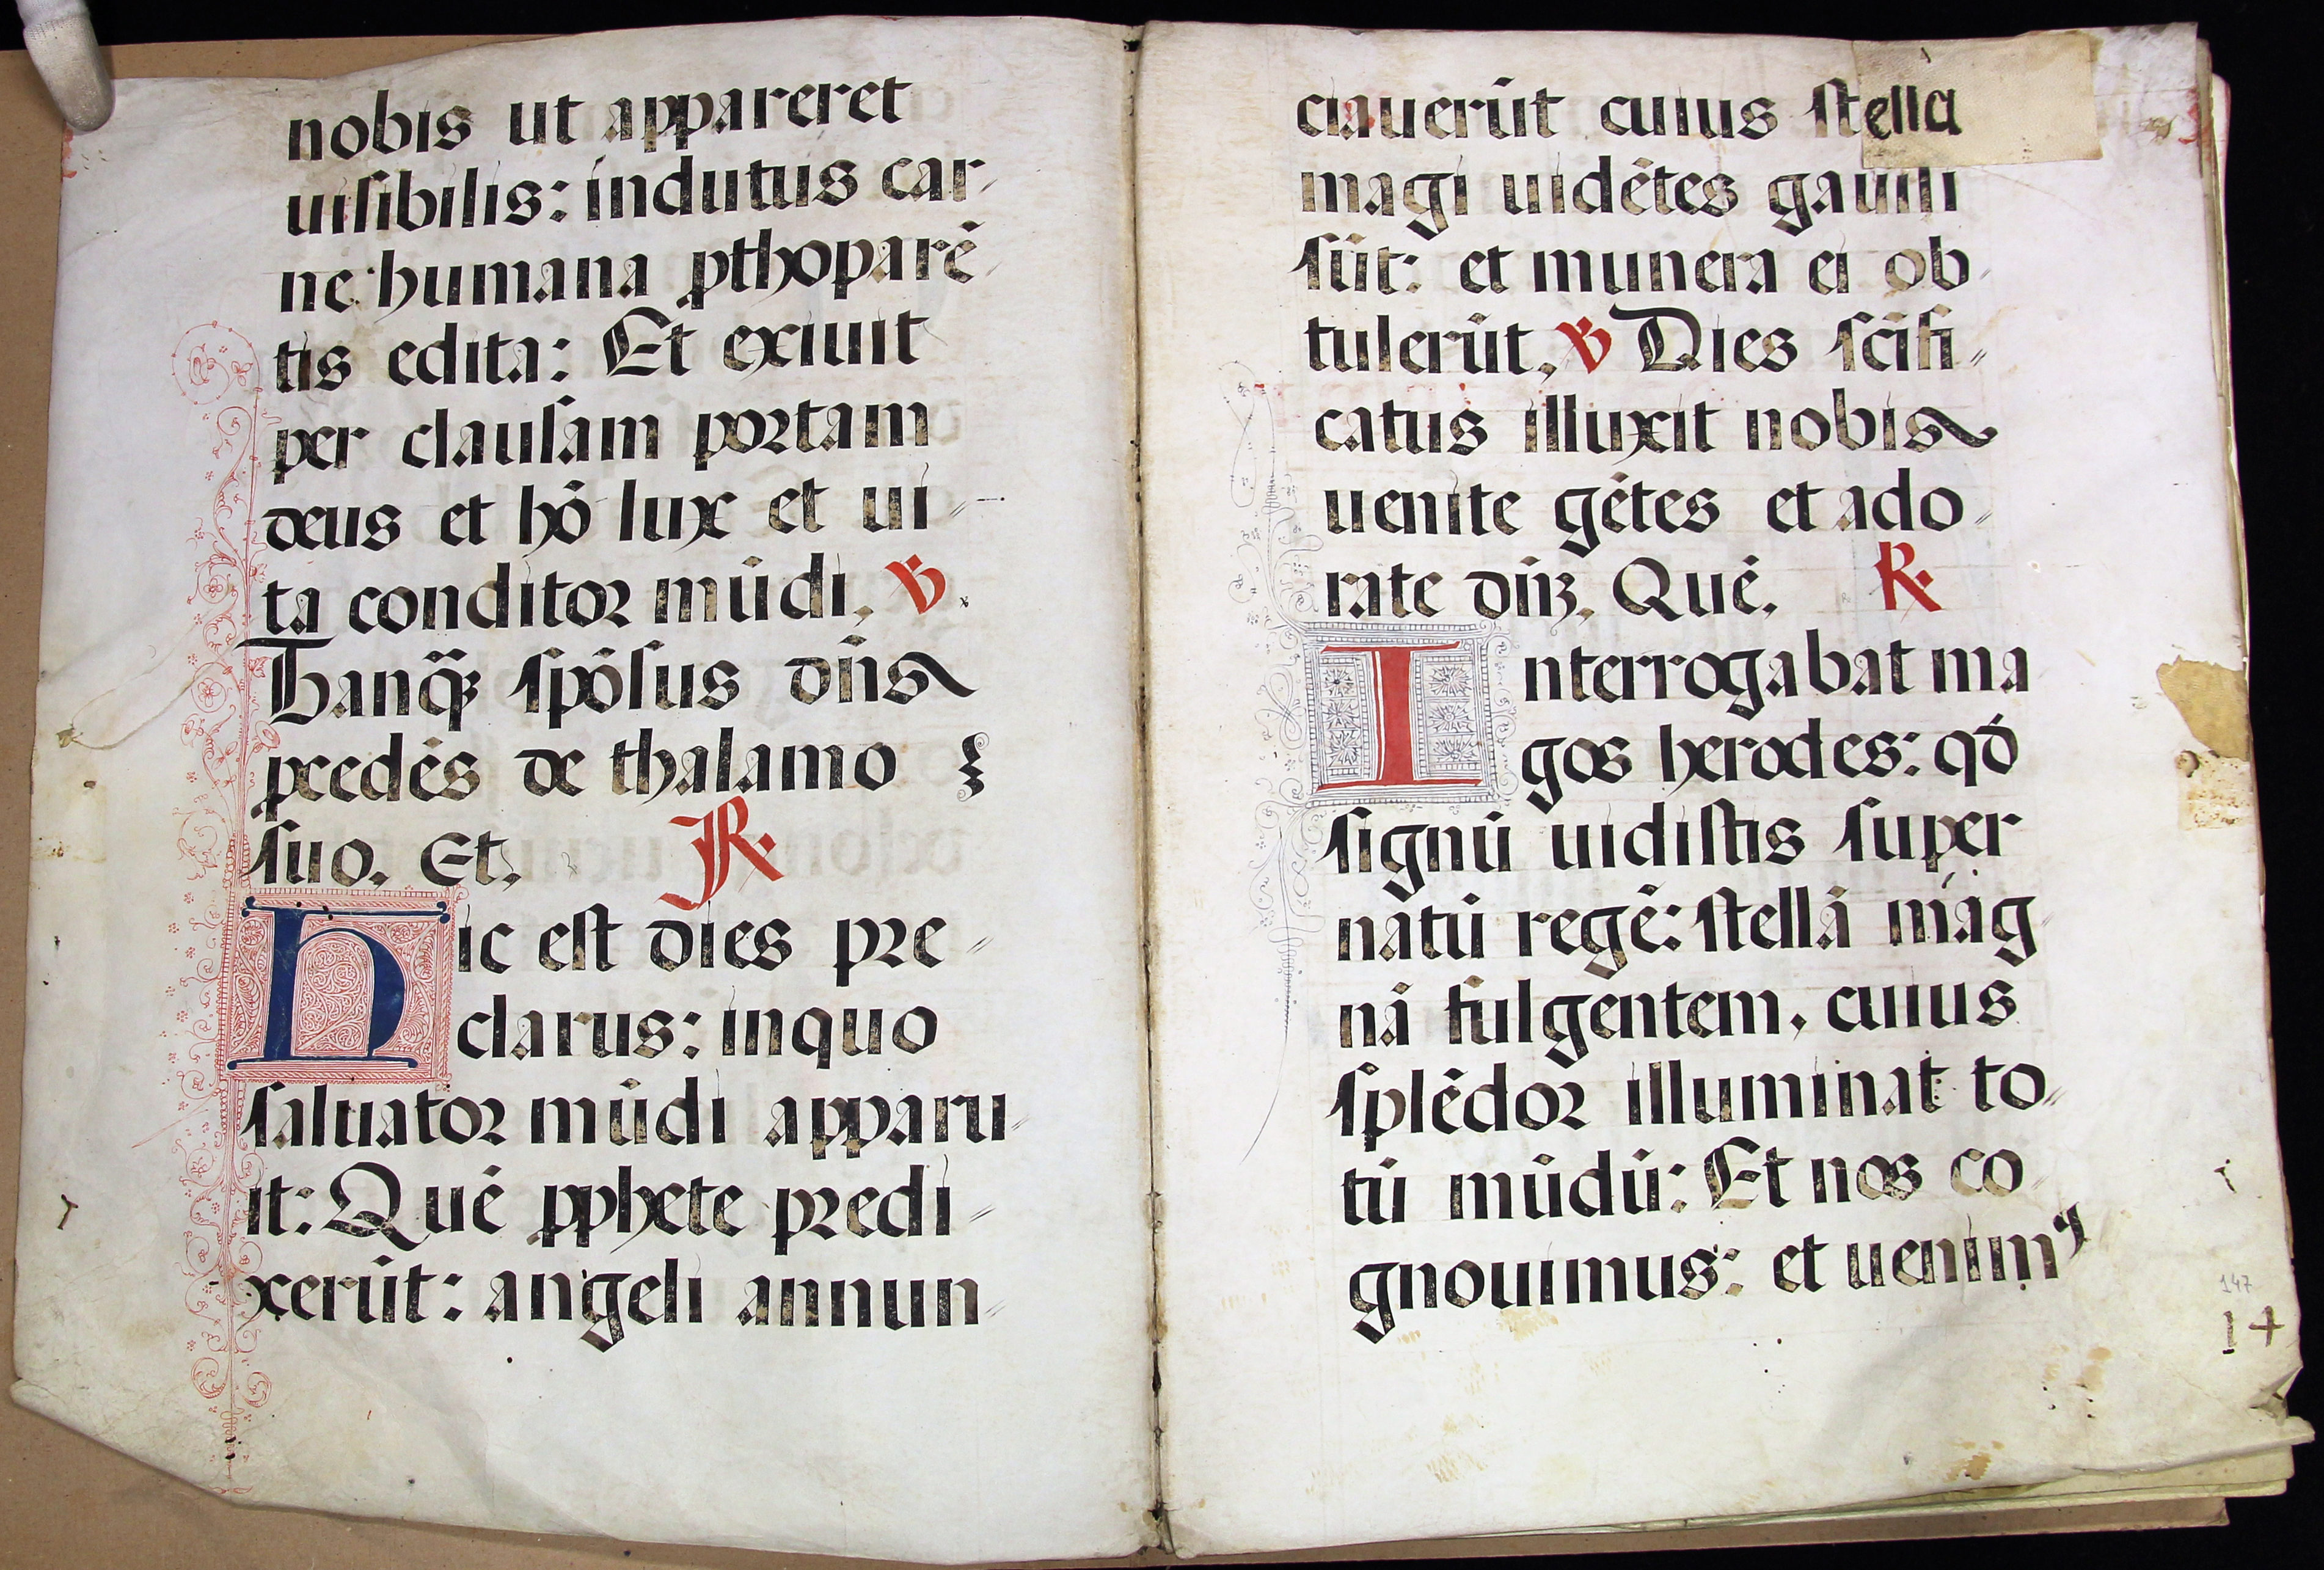 nobis ut appareret
uisibilis: indutus car-
ne humana pthoparē
tis edita: Et exiuit
per clausam portam
deus et hō lux et ui-
ta conditor mūdi, ℣.
Thanqȝ spōsus dn̄s
ꝓcedēs de thalamo
suo. Et. ℟.
Hic est dies pre-
clarus: inquo
saluator mūdi apparu-
it: Quē ꝓphete predi-
xerūt: angeli annun-
ciauerūt cuius stella
magi uidētes gauisi
sūt: et munera ei ob-
tulerūt, ℣ Dies scīfi-
catus illuxit nobis
uenite gētes et ado-
rate dn̄ȝ. Quē. ℟.
Interrogabat ma-
gos herodes: qd̄
signū uidistis super
natū regē: stellā mag-
nā fulgentem, cuius
splēdor illuminat to-
tū mūdū: Et nos co-
gnouimus: et uenimꝰ
147